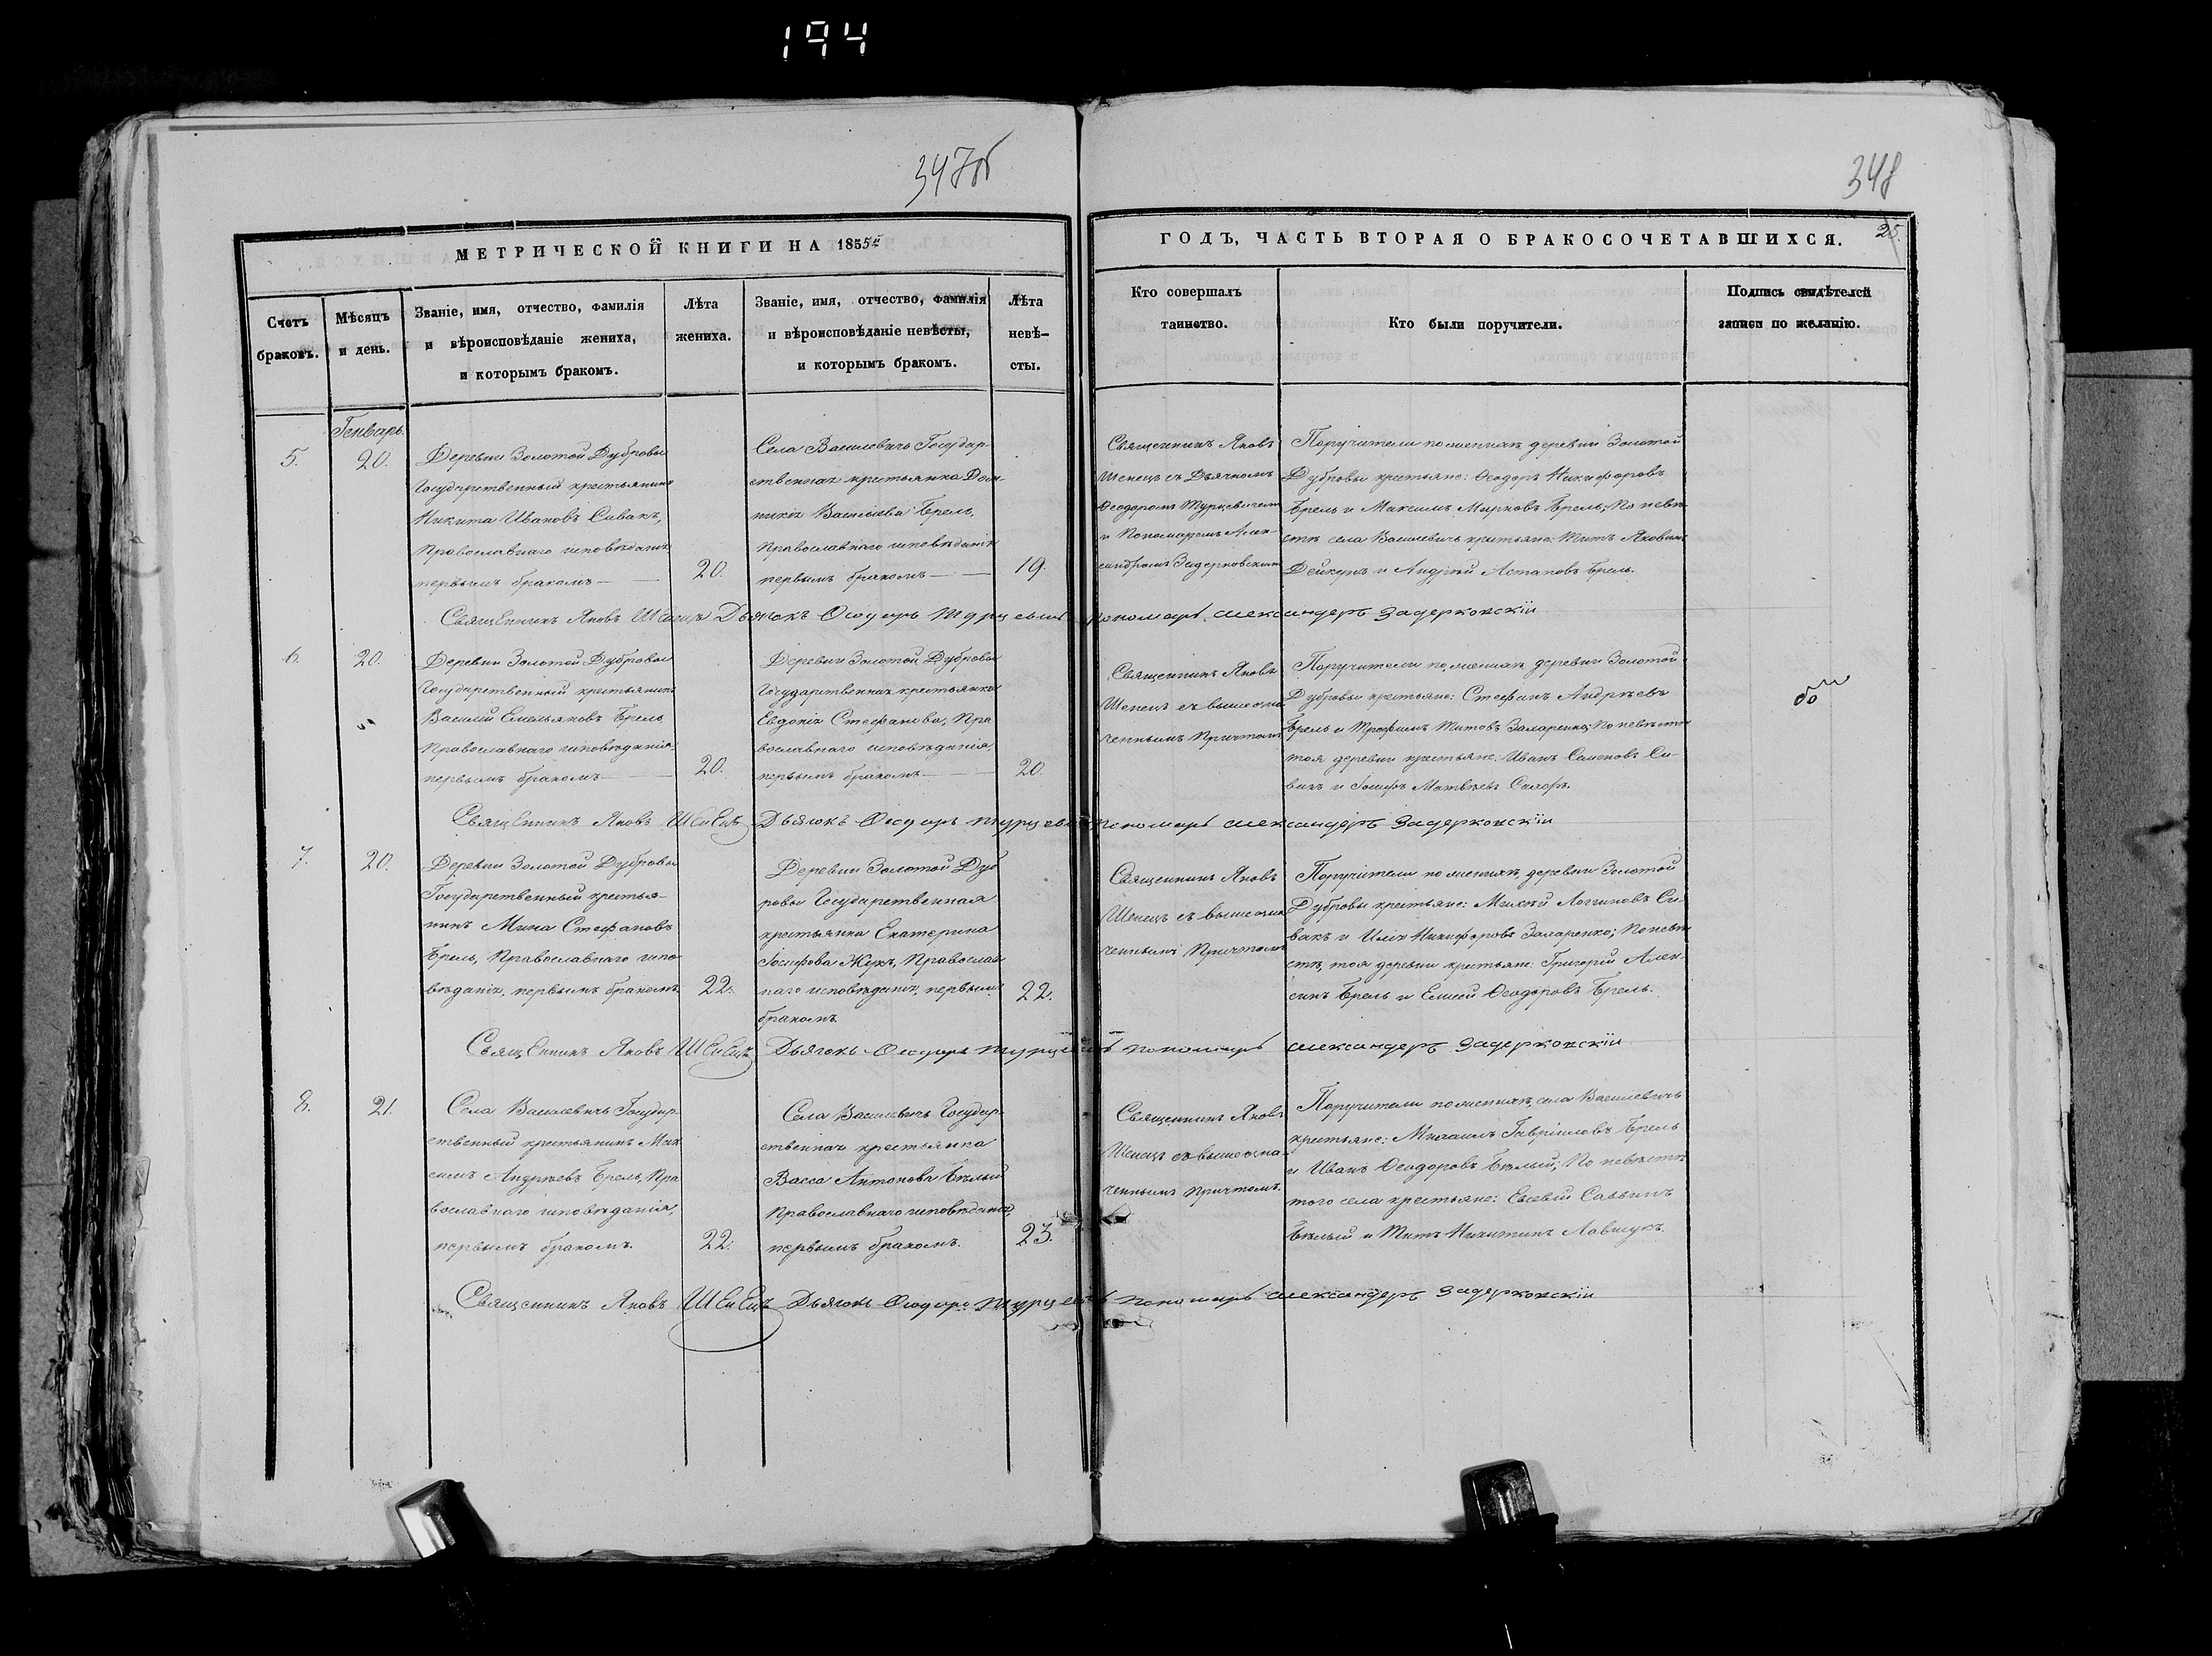 194
347об
348
25.
МЕТРИЧЕСКОЙ КНИГИ НА 1855й
ГОДЪ, ЧАСТЬ ВТОРАЯ О БРАКОСОЧЕТАВШИХСЯ.
Счетъ
браковъ.
Мѣсяцъ
и день.
Званіе, имя, отчество, фамилія
и вѣроисповѣданіе жениха,
и которымъ бракомъ.
Лѣта
жениха.
Званіе, имя, отчество, фамилія
и вѣроисповѣданіе невѣсты,
и которымъ бракомъ.
Лѣта
невѣ-
сты.
Кто совершалъ
таинство.
Кто были поручители.
Подпись свидѣтелей
записи по желанію.
Генварь.
5.
20.
Деревни Золотой Дубровы
Государственный крестьянинъ
Никита Ивановъ Сивакъ,
Православнаго исповѣданія
первымъ бракомъ —
20.
Села Василевичъ Государ-
ственная крестьянка Дом-
никія Васильева Брель,
Православнаго исповѣданія
первымъ бракомъ —
19.
Священникъ Яковъ
Шенецъ съ Дьячкомъ
Ѳеодоромъ Турцевичемъ
и Пономаремъ Алек-
сандромъ Задерковскимъ
Поручители по женихѣ деревни Золотой
Дубровы крестьяне: Ѳеодоръ Никифоровъ
Брель и Максимъ Марковъ Брель; По невѣ-
стѣ села Василевичъ крестьяне: Титъ Яковинъ
Дейкунъ и Андрей Астаповъ Брель.
Священникъ Яковъ Шенецъ Дьячокъ Ѳеодоръ Турцевичъ пономарь Александеръ Задерковскій
6.
20.
Деревни Золотой Дубровы
Государственный крестьянинъ
Василій Емельяновъ Брель
Православнаго исповѣданія,
первымъ бракомъ —
20.
Деревни Золотой Дубровы
Государственная крестьянка
Евдокія Стефанова, Пра
вославнаго исповѣданія
первымъ бракомъ —
20.
Священникъ Яковъ
Шенецъ съ вышеозна
ченнымъ Причтомъ
Поручители по женихѣ деревни Золотой
Дубровы крестьяне: Стефанъ Андрѣевъ
Брель и Трофимъ Титовъ Захаренко; По невѣстѣ
тоя деревни крестьяне: Иванъ Семеновъ Си-
вакъ и Іосифъ Матвѣевъ
Священникъ Яковъ Шенецъ Дьячокъ Ѳеодоръ Турцевичъ пономарь Александеръ Задерковскій
7.
20.
Деревни Золотой Дубровы
Государственный крестья-
нинъ Мина Стефановъ
Брель, Православнаго испо
вѣданія, первымъ бракомъ
22.
Деревни Золотой Дуб
ровы Государственная
крестьянка Екатерина
Іосифова Жукъ, Православ
наго исповѣданія, первымъ
бракомъ
22.
Священникъ Яковъ
Шенецъ съ вышеозна
ченнымъ Причтомъ
Поручители по женихѣ, деревни Золотой
Дубровы крестьяне: Михей Логгиновъ Си-
вакъ и Илія Никифоровъ Захаренко; По невѣ
стѣ, тоя деревни крестьяне: Григорій Алек-
синъ Брель и Елисей Ѳеодоровъ Брель.
Священникъ Яковъ Шенецъ Дьячокъ Ѳеодоръ Турцевичъ пономарь Александеръ Задерковскій
8.
21.
Села Василевичъ Государ-
ственный крестьянинъ Мак
симъ Андрѣевъ Брель, Пра
вославнаго исповѣданія,
первымъ бракомъ.
22.
Села Василевичъ Государ-
ственная крестьянка
Васса Антонова Бѣлый
Православнаго исповѣданія,
первымъ бракомъ.
23.
Священникъ Яковъ
Шенецъ съ вышеозна-
ченнымъ причтомъ.
Поручители по женихѣ, села Василевичъ
крестьяне: Михаилъ Гавріиловъ Брель
и Иванъ Ѳеодоровъ Бѣлый; По невѣстѣ
того села крестьяне: Евсевій Саввинъ
Бѣлый и Титъ Никитинъ Лавшукъ.
Священникъ Яковъ Шенецъ Дьячокъ Ѳеодоръ Турцевичъ пономарь Александеръ Задерковскій